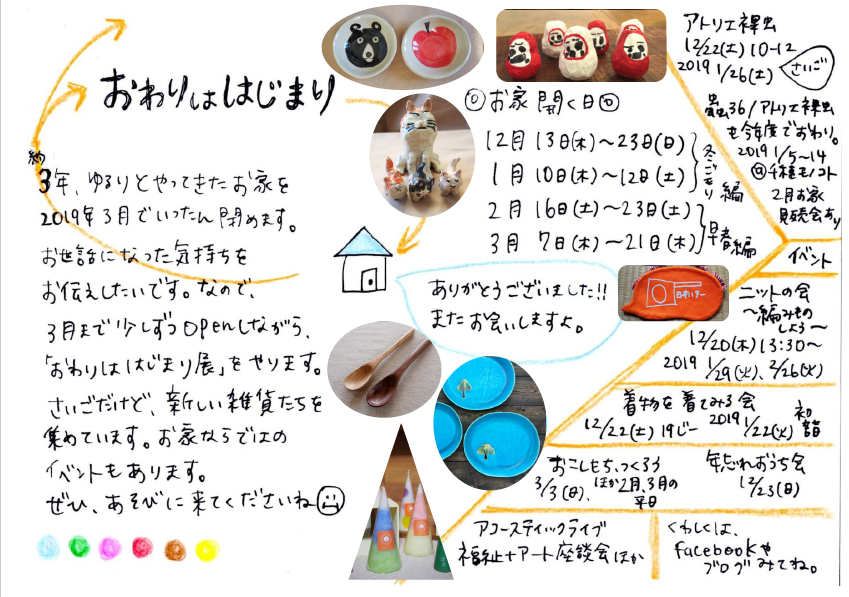 おわりははじまり
約
3年、ゆるりとやってきたお家を
2019年3月でいったん閉めます。
お世話になった気持ちを
お伝えしたいです。なので、
3月まで少しずつOpenしながら、
「おわりははじまり展」をやります。
さいごだけど、新しい雑貨たちを
集めています。お家ならではの
イベントもあります。
ぜひ、あそびに来てくださいね
お家開く日
12月 13日(木)〜23日(日)
1月 10日(木)〜12日(土)
冬ごもり編
2月 16日(土)〜23日(土)
3月 7日(木)〜21日(木)
早春編
ありがとうございました!!
またお会いしますよ。
アトリエ裸虫
12/22(土) 10-12
2019 1/26(土)
さいご
蟲36/アトリエ裸虫
も今年度でおわり。
2019 1/5〜14
@千種モノコト
2月お家
見続会あり
イベント
ニットの会
〜編みもの
しよう〜
12/20(木) 13:30〜
2019 1/29(火)、2/26(火)
着物を着てみる会
12/22(土) 19じー
2019 1/22(火)
初詣
おこしもち、つくろう
3/3(日)、ほか2月、3月の
平日
年忘れおうち会
12/23(日)
アコースティックライブ
福祉+アート座談会ほか
くわしくは、
facebookや
ブログみてね。